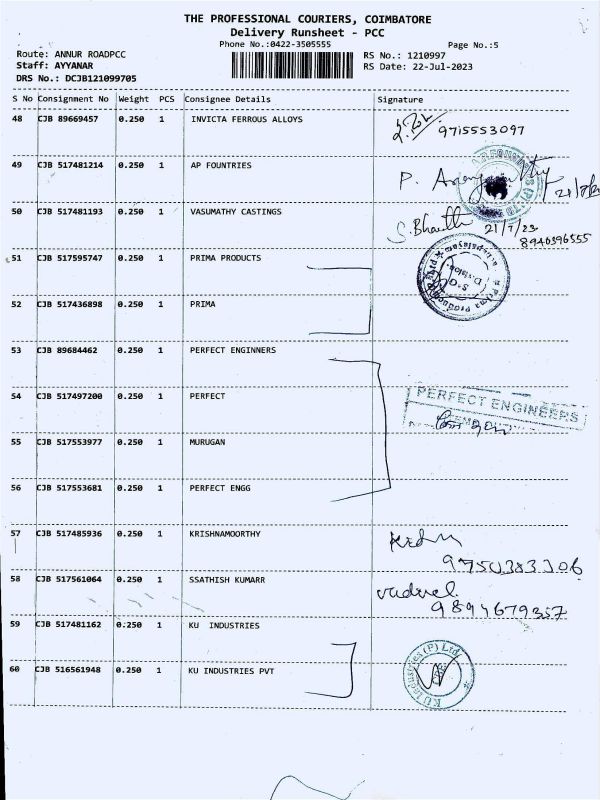 THE PROFESSIONAL COURIERS, COIMBATORE
Delivery Runsheet - PCC
Phone No.:0422-3505555 Page No.:5
Route: ANNUR ROADPCC RS No.: 1210997
Staff: AYYANAR RS Date: 22-Jul-2023
DRS No.: DCJB121099705
S No Consignment No Weight PCS Consignee Details Signature
48 CJB 89669457 0.250 1 INVICTA FERROUS ALLOYS
9715553097
49 CJB 517481214 0.250 1 AP FOUNTRIES
P.
50 CJB 517481193 0.250 1 VASUMATHY CASTINGS
S. Bharathi 21/7/23
8940596555
51 CJB 517595747 0.250 1 PRIMA PRODUCTS
Prima Products
S.G. Division
52 CJB 517436898 0.250 1 PRIMA
53 CJB 89684462 0.250 1 PERFECT ENGINNERS
54 CJB 517497200 0.250 1 PERFECT
PERFECT ENGINEERS
55 CJB 517553977 0.250 1 MURUGAN
56 CJB 517553681 0.250 1 PERFECT ENGG
57 CJB 517485936 0.250 1 KRISHNAMOORTHY
9750383306
58 CJB 517561064 0.250 1 SSATHISH KUMARR
vadivel
9894679357
59 CJB 517481162 0.250 1 KU INDUSTRIES
60 CJB 516561948 0.250 1 KU INDUSTRIES PVT
KU Industries (P) Ltd